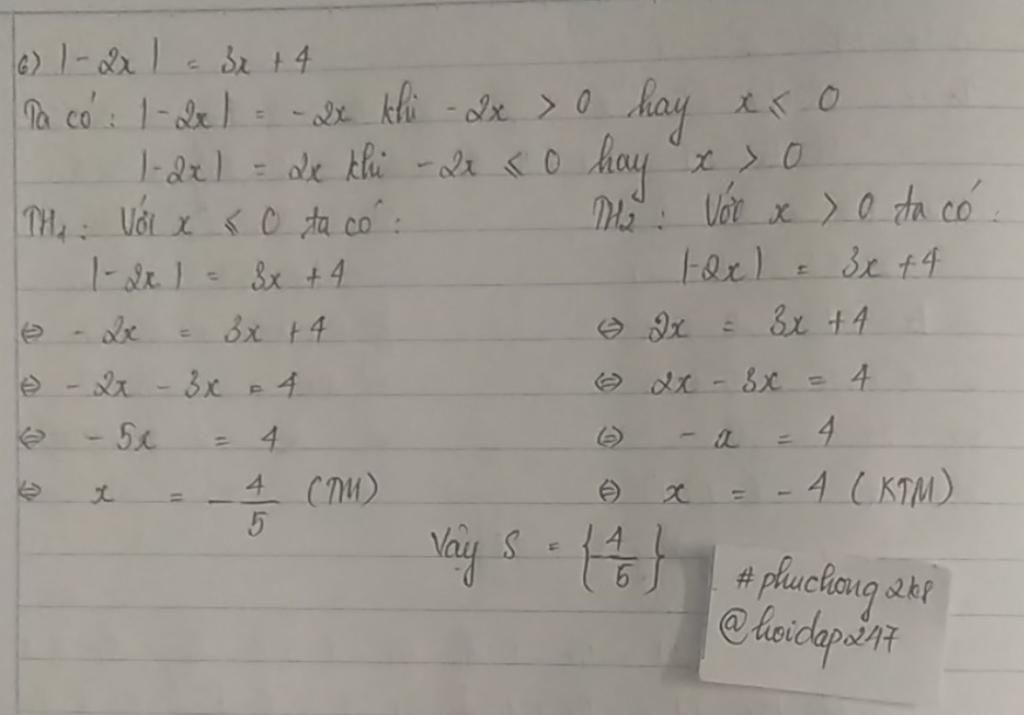 c) |-2x| = 3x + 4
Ta có: |-2x| = -2x khi -2x > 0 hay x < 0
|-2x| = 2x khi -2x ≤ 0 hay x > 0
TH1: Với x ≤ 0 ta có:
|-2x| = 3x + 4
⇔ -2x = 3x + 4
⇔ -2x - 3x = 4
⇔ -5x = 4
⇔ x = -4/5 (TM)
TH2: Với x > 0 ta có:
|-2x| = 3x + 4
⇔ 2x = 3x + 4
⇔ 2x - 3x = 4
⇔ -x = 4
⇔ x = -4 (KTM)
Vậy S = {4/5}
#phuchong2k8
@hoidap247